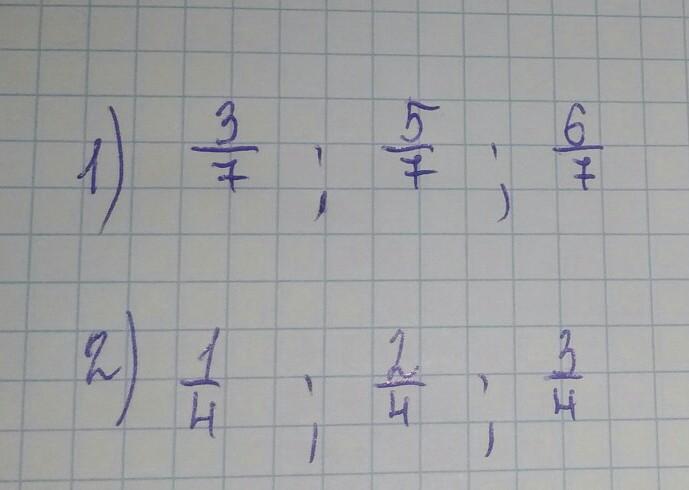 1) 3/7 ; 5/7 ; 6/7
2) 1/4 ; 2/4 ; 3/4